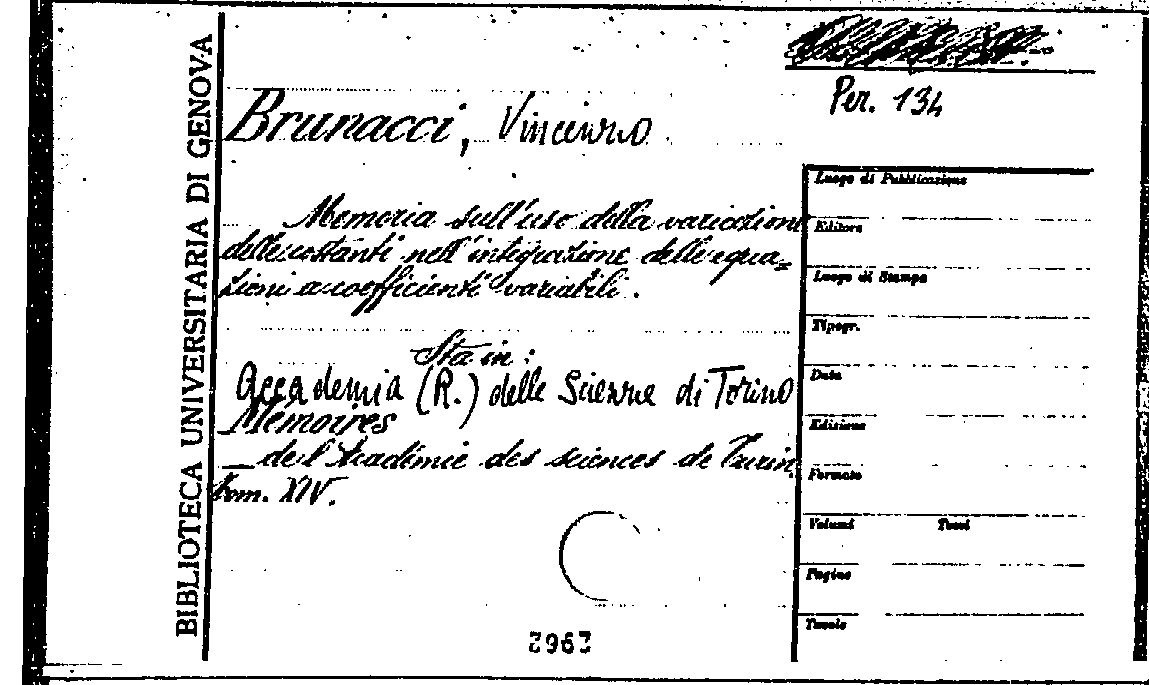 BIBLIOTECA UNIVERSITARIA DI GENOVA
Per. 134
Brunacci, Vincenzo
Memoria sull'uso della variazione
delle costanti nell'integrazione delle equa=
zioni a coefficienti variabili.
Sta in:
Accademia (R.) delle Scienze di Torino
Mémoires
_ de l'Académie des sciences de Turin,
tom. XIV.
Luogo di Pubblicazione
Editore
Luogo di Stampa
Tipogr.
Data
Edizione
Formato
Volumi Tomi
Pagine
Tavole